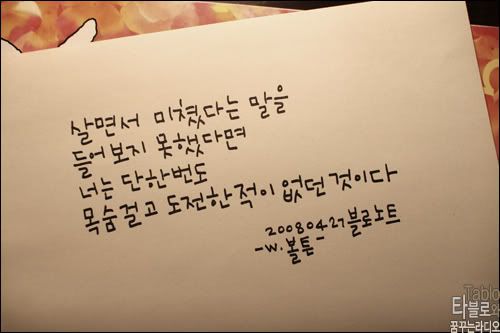 살면서 미쳤다는 말을
들어보지 못했다면
너는 단한번도
목숨걸고 도전한적이 없던것이다
20080427 블로노트
-w. 볼튼-
Tablo
타블로와
꿈꾸는라디오